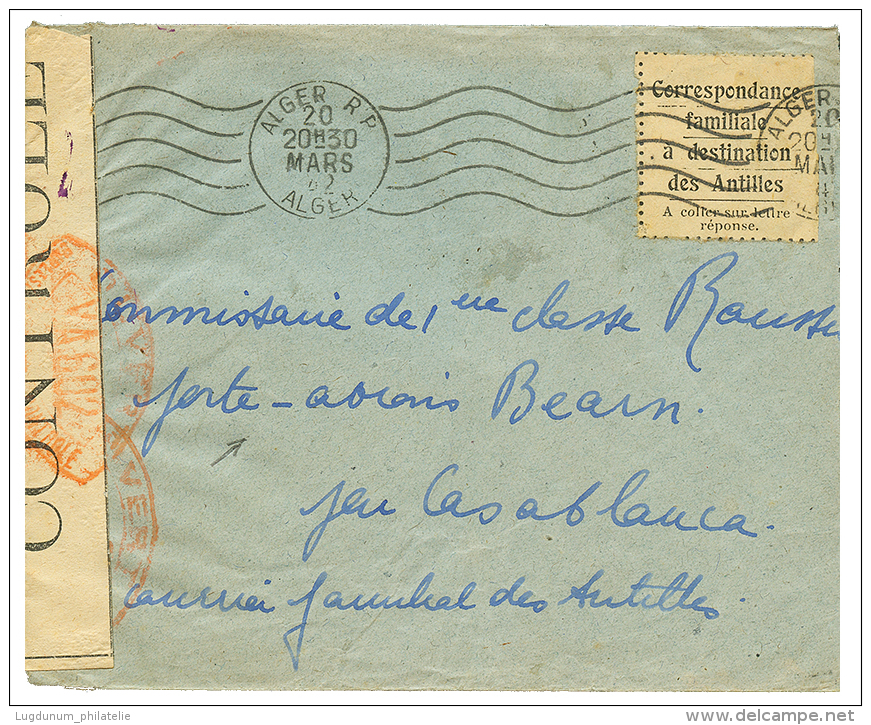 CONTROLE
ALGER R.P
20
20H30
MARS
42
ALGER
Correspondance
familiale
à destination
des Antilles
A coller sur lettre
réponse.
ALGER
20
20H
MAR
4
OUVERT
Commissaire de 1ère classe Rousse
porte-avions Bearn.
par Casablanca.
Courrier familial des Antilles.
Lugdunum_philatelie
www.delcampe.net